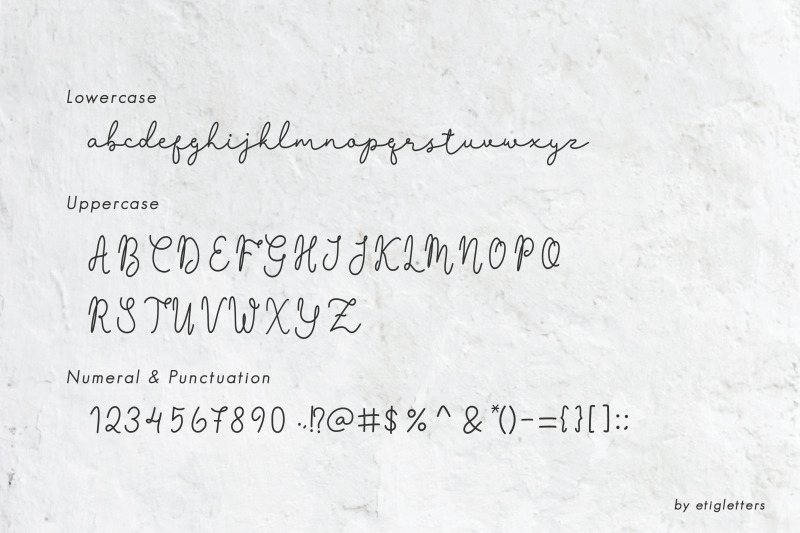 Lowercase
abcdefghijklmnopqrstuvwxyz
Uppercase
ABCDEFGHIJKLMNOPQ
RSTUVWXYZ
Numeral & Punctuation
1234567890 .,!?@#$%^&*()-={}[]::
by etigletters